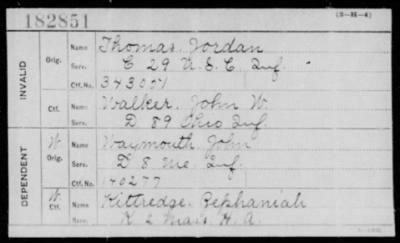 182851
(3-H-4)
INVALID
Orig. Name Thomas, Jordan
Serv. C 29 U.S.C. Inf.
Ctf. No. 343051
Ctf. Name Walker, John W
Serv. D 89 Ohio Inf.
DEPENDENT
W Orig. Name Waymouth, John
Serv. D 8 Me. Inf.
Ctf. No. 140277
W Ctf. Name Kittredge, Zephaniah
Serv. K 2 Mass. H. A.